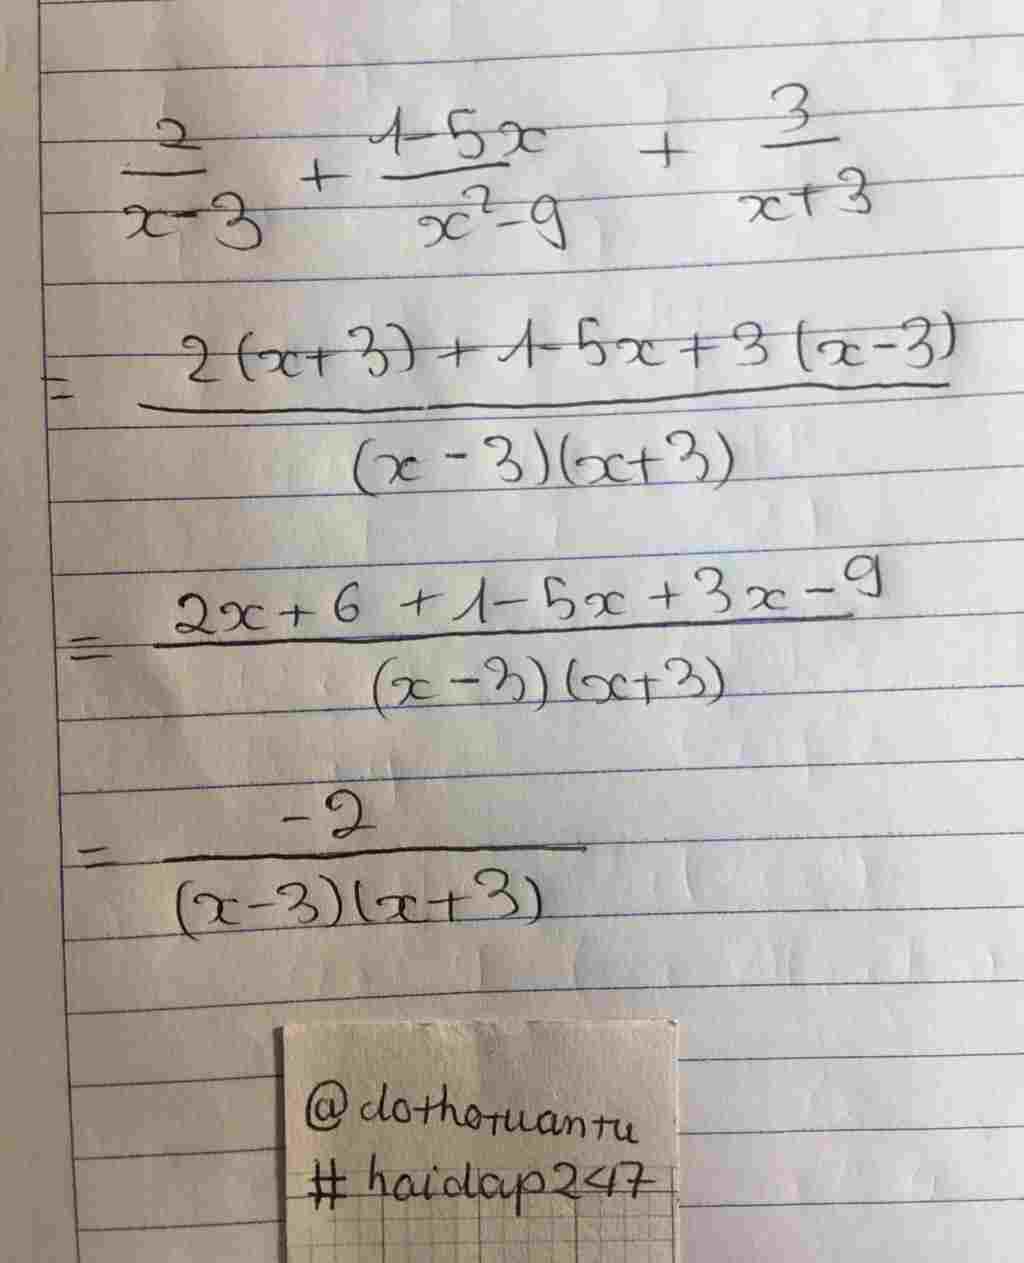 2/(x-3) + (1-5x)/(x²-9) + 3/(x+3)
= (2(x+3) + 1-5x + 3(x-3))/((x-3)(x+3))
= (2x+6 + 1-5x + 3x-9)/((x-3)(x+3))
= -2/((x-3)(x+3))
@dothotuantu
#haidap247